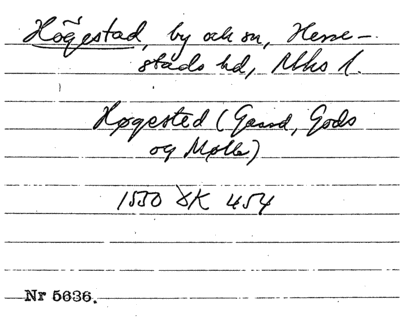 Högestad, by och sn, Herre-
stads hd, Mhs l.
Høgested (Gaard, Gods
og Mølle)
1550 DK 454
Nr 5636.